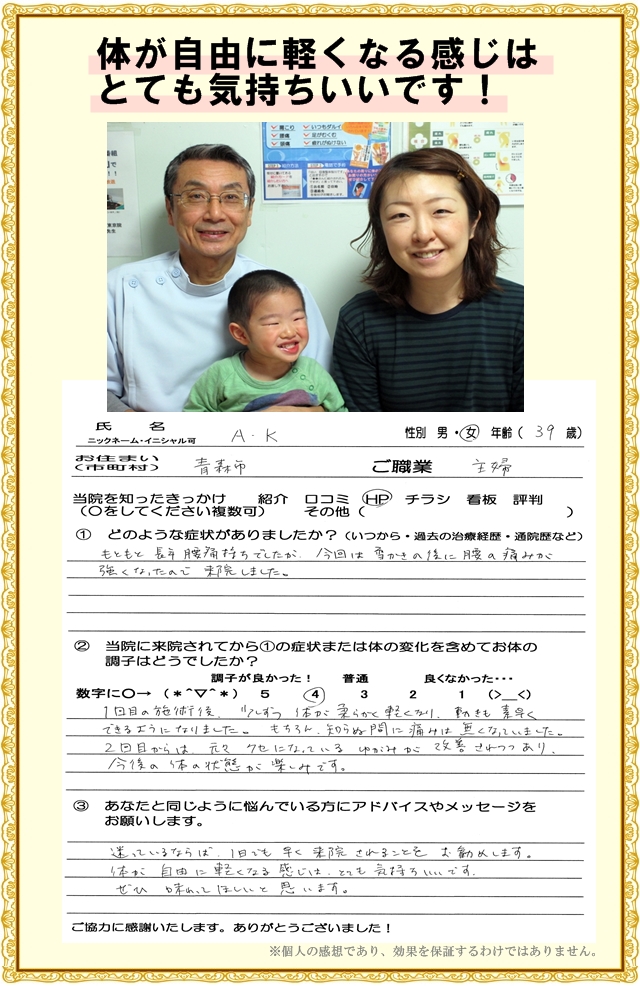 体が自由に軽くなる感じは
とても気持ちいいです！
肩こり いつもダルイ
腰痛 足がむくむ
頭痛 疲れがぬけない
氏 名
ニックネーム・イニシャル可 A・K 性別 男・女 年齢（ 39 歳）
お住まい
（市町村） 青森市 ご職業 主婦
当院を知ったきっかけ 紹介 口コミ HP チラシ 看板 評判
（〇をしてください複数可） その他（ ）
① どのような症状がありましたか？（いつから・過去の治療経歴・通院歴など）
もともと長年腰痛持ちでしたが、今回は雪かきの後に腰の痛みが
強くなったので来院しました。
② 当院に来院されてから①の症状または体の変化を含めてお体の
調子はどうでしたか？
調子が良かった！ 普通 良くなかった・・・
数字に〇→ （＊^▽^＊） 5 4 3 2 1 （>__<）
1回目の施術後、少しずつ体が柔らかく軽くなり、動きも素早く
できるようになりました。もちろん、知らぬ間に痛みは無くなっていました。
2回目からは、元々クセになっているゆがみが改善されつつあり、
今後の体の状態が楽しみです。
③ あなたと同じように悩んでいる方にアドバイスやメッセージを
お願いします。
迷っているならば、1日でも早く来院されることをお勧めします。
体が自由に軽くなる感じは、とても気持ちいいです。
ぜひ味わってほしいと思います。
ご協力に感謝いたします。ありがとうございました！
※個人の感想であり、効果を保証するわけではありません。